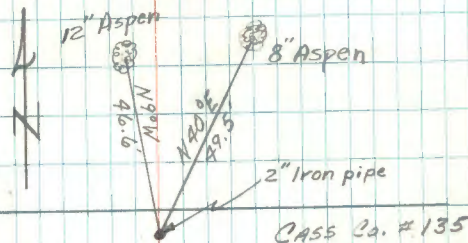 12" Aspen
8" Aspen
N9°W
46.6'
N40°E
49.5'
N
2" Iron pipe
CASS Co. # 135